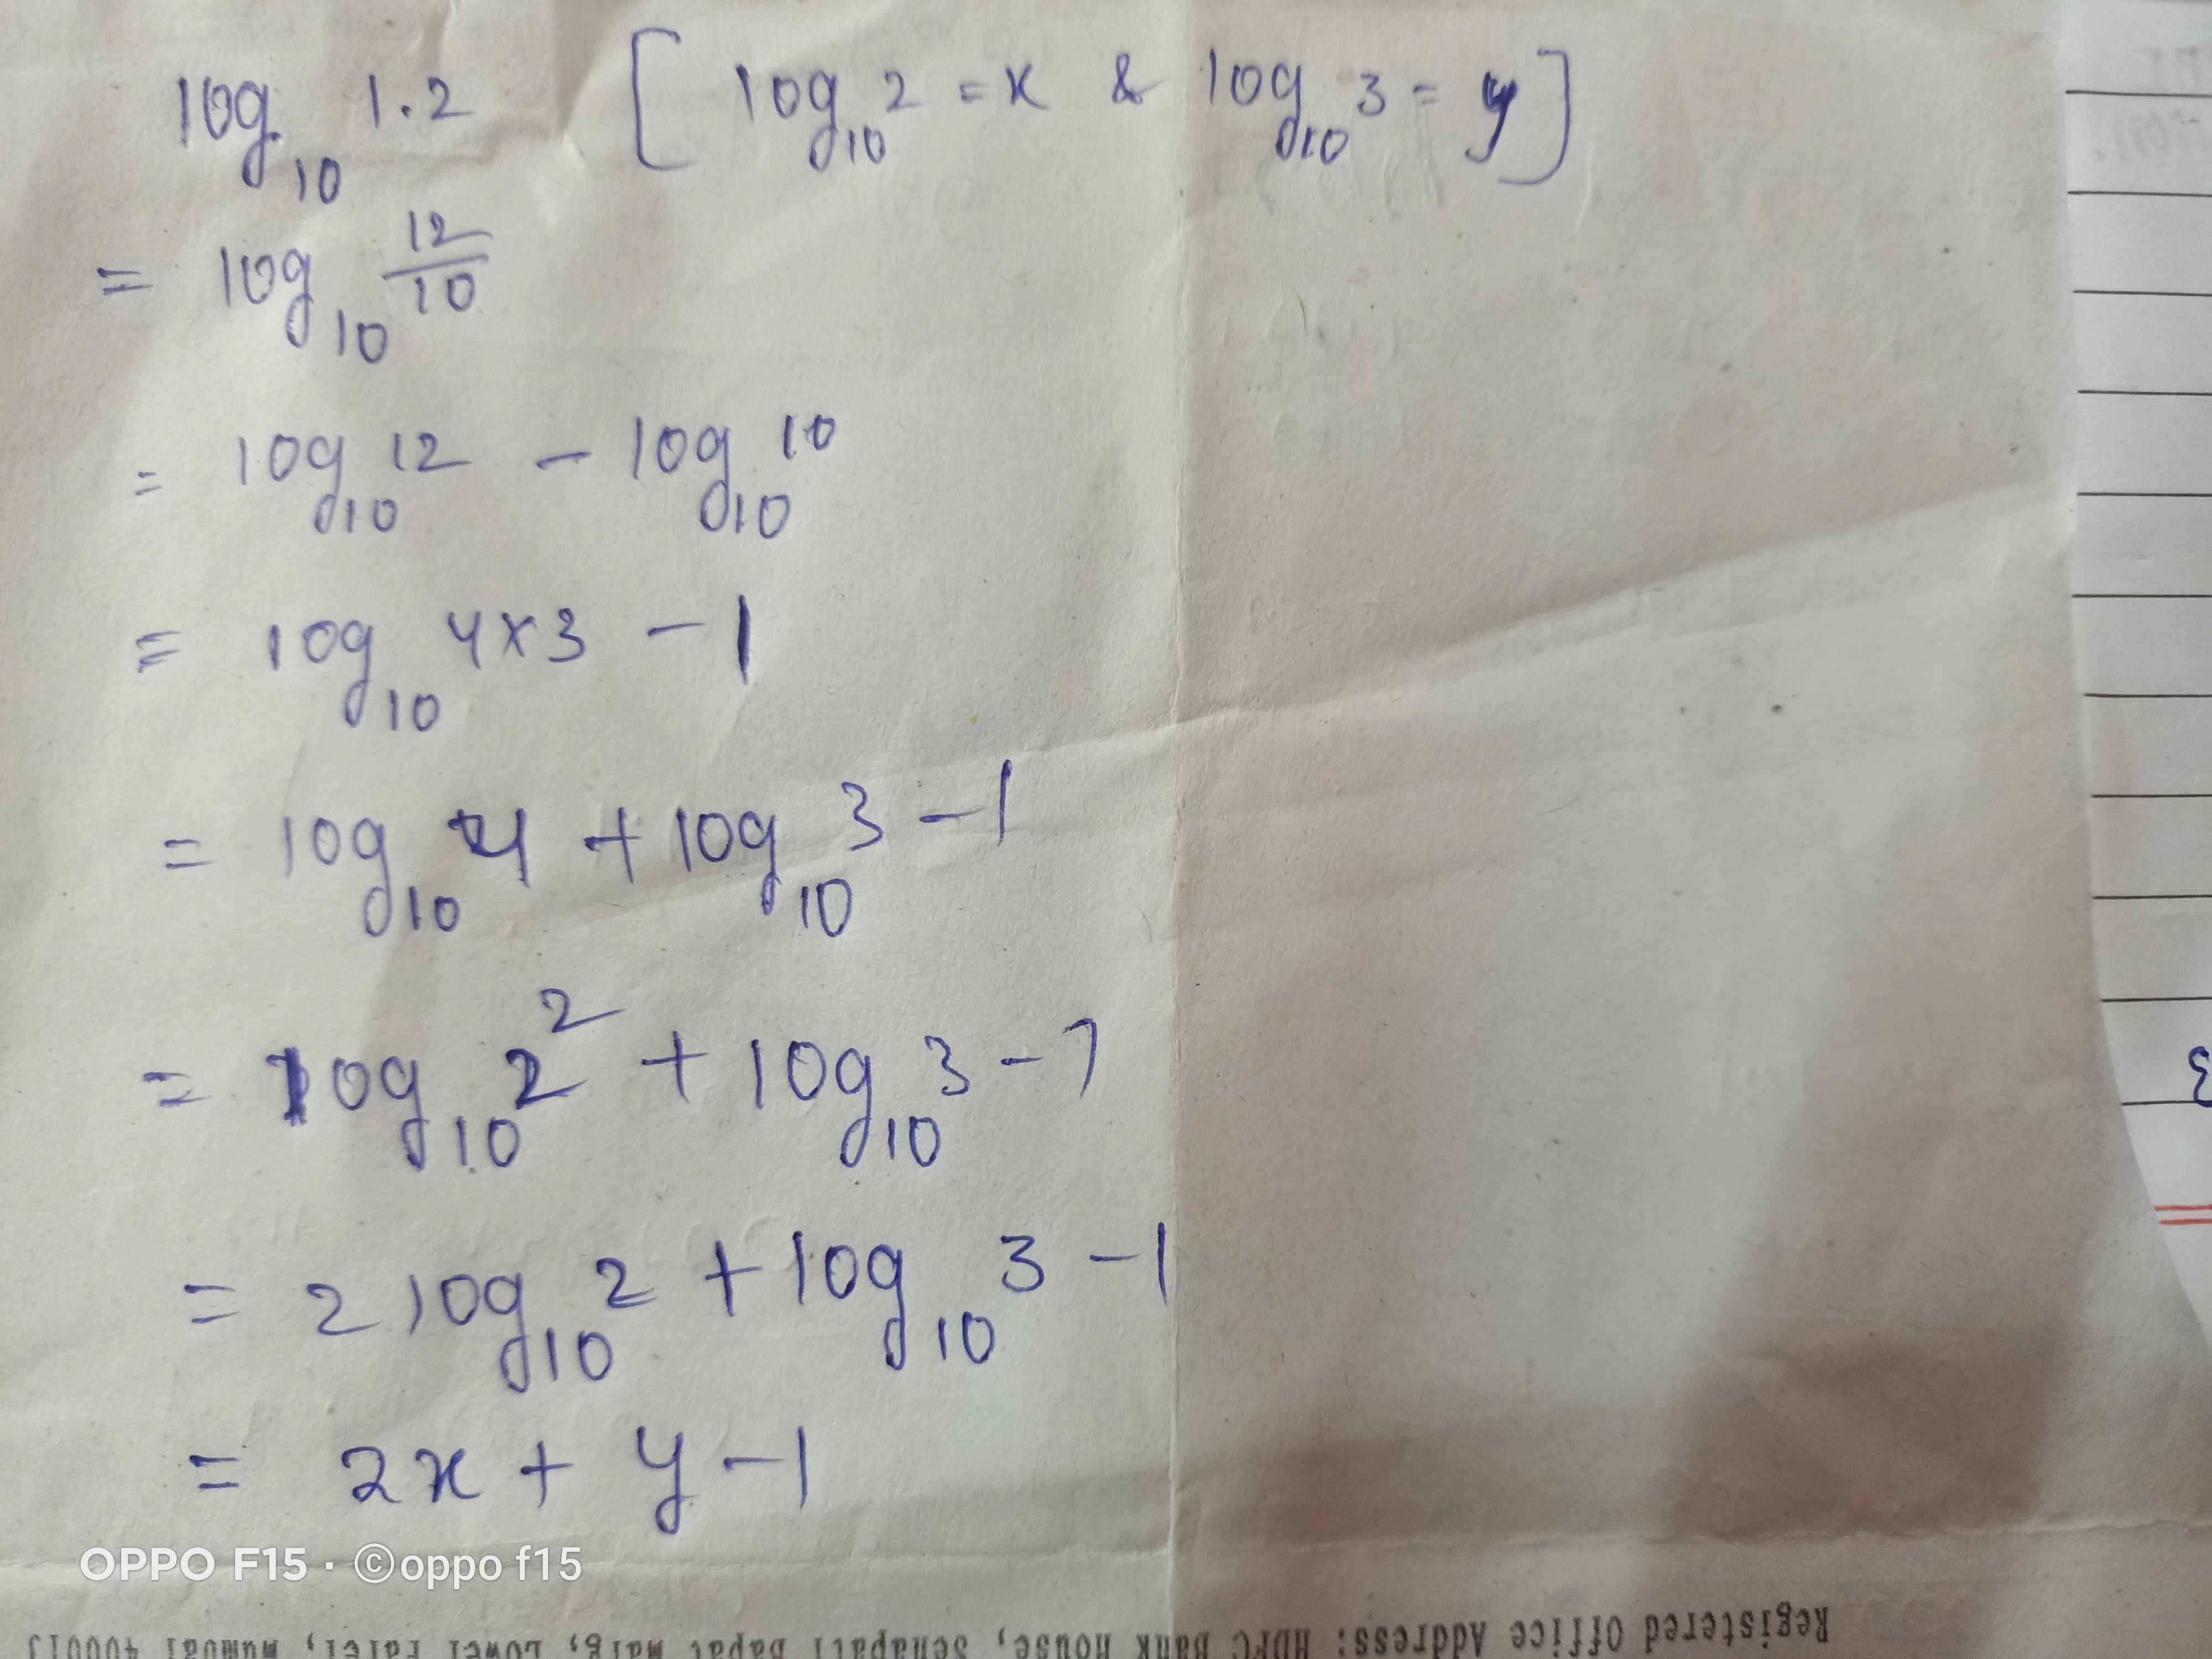 log₁₀ 1.2 [ log₁₀ 2 = x & log₁₀ 3 = y ]
= log₁₀ 12/10
= log₁₀ 12 - log₁₀ 10
= log₁₀ 4×3 - 1
= log₁₀ 4 + log₁₀ 3 - 1
= log₁₀ 2² + log₁₀ 3 - 1
= 2 log₁₀ 2 + log₁₀ 3 - 1
= 2x + y - 1
OPPO F15 · ©oppo f15
Registered Office Address: HDFC Bank House, Senapati Bapat Marg, Lower Parel, Mumbai 400013
3